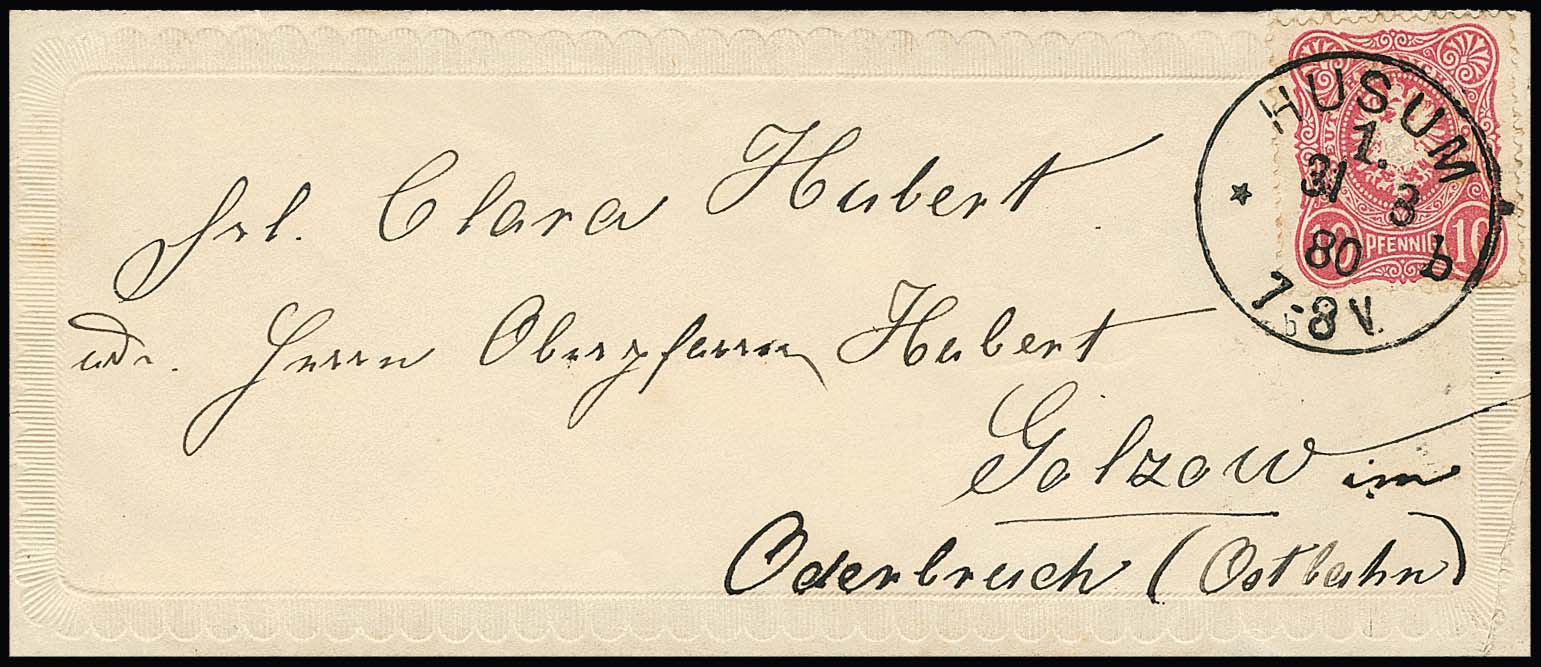 HUSUM
1.
31 3
80 b
7-8 V.
10 PFENNIG 10
Frl. Clara Hubert
Herrn Oberpfarrer Hubert
Golzow im
Oderbruch (Ostbahn)